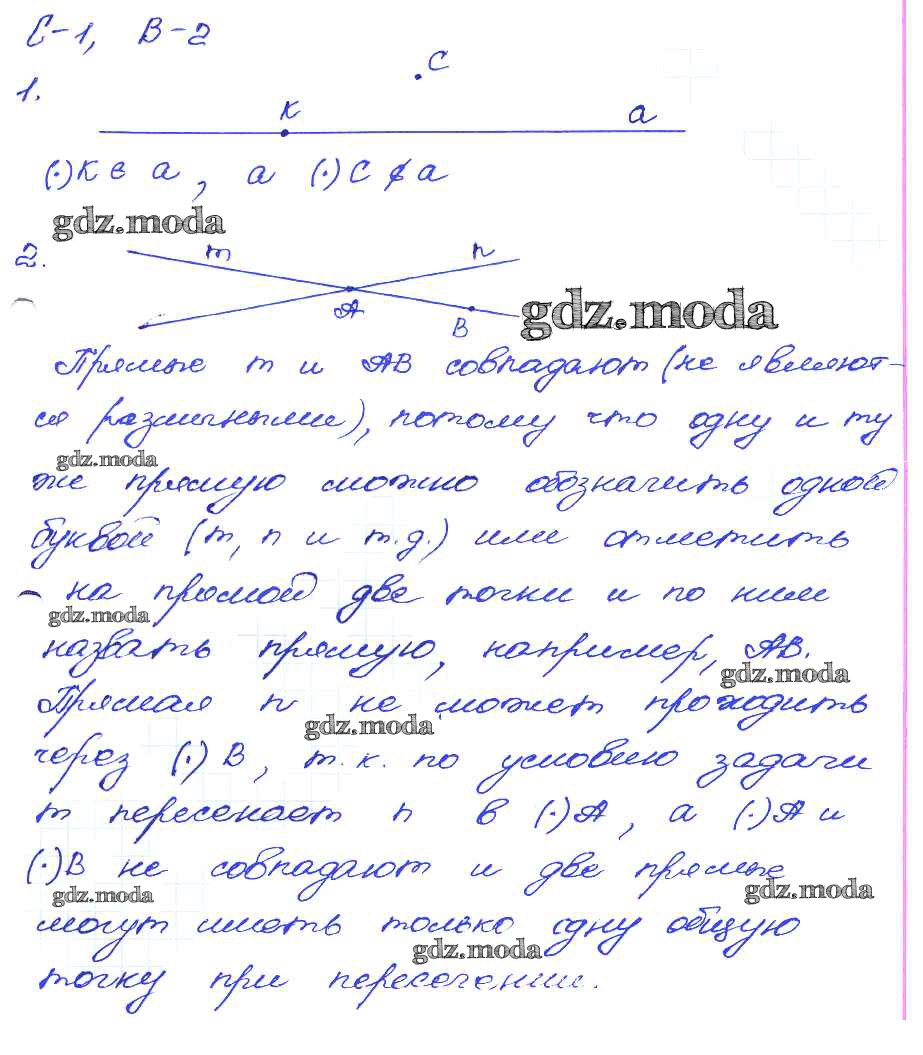 С-1, В-2
1.
С
К
а
(·)К ∈ а, а (·)С ∉ а
gdz.moda
2.
m
n
А
В
gdz.moda
Прямые m и АВ совпадают (не являют-
ся различными), потому что одну и ту
gdz.moda
же прямую можно обозначить одной
буквой (m, n и т.д.) или отметить
на прямой две точки и по ним
gdz.moda
назвать прямую, например, АВ.
gdz.moda
Прямая n не может проходить
gdz.moda
через (·) В, т.к. по условию задачи
m пересекает n в (·)А, а (·)А и
(·)В не совпадают и две прямые
gdz.moda
gdz.moda
могут иметь только одну общую
gdz.moda
точку при пересечении.